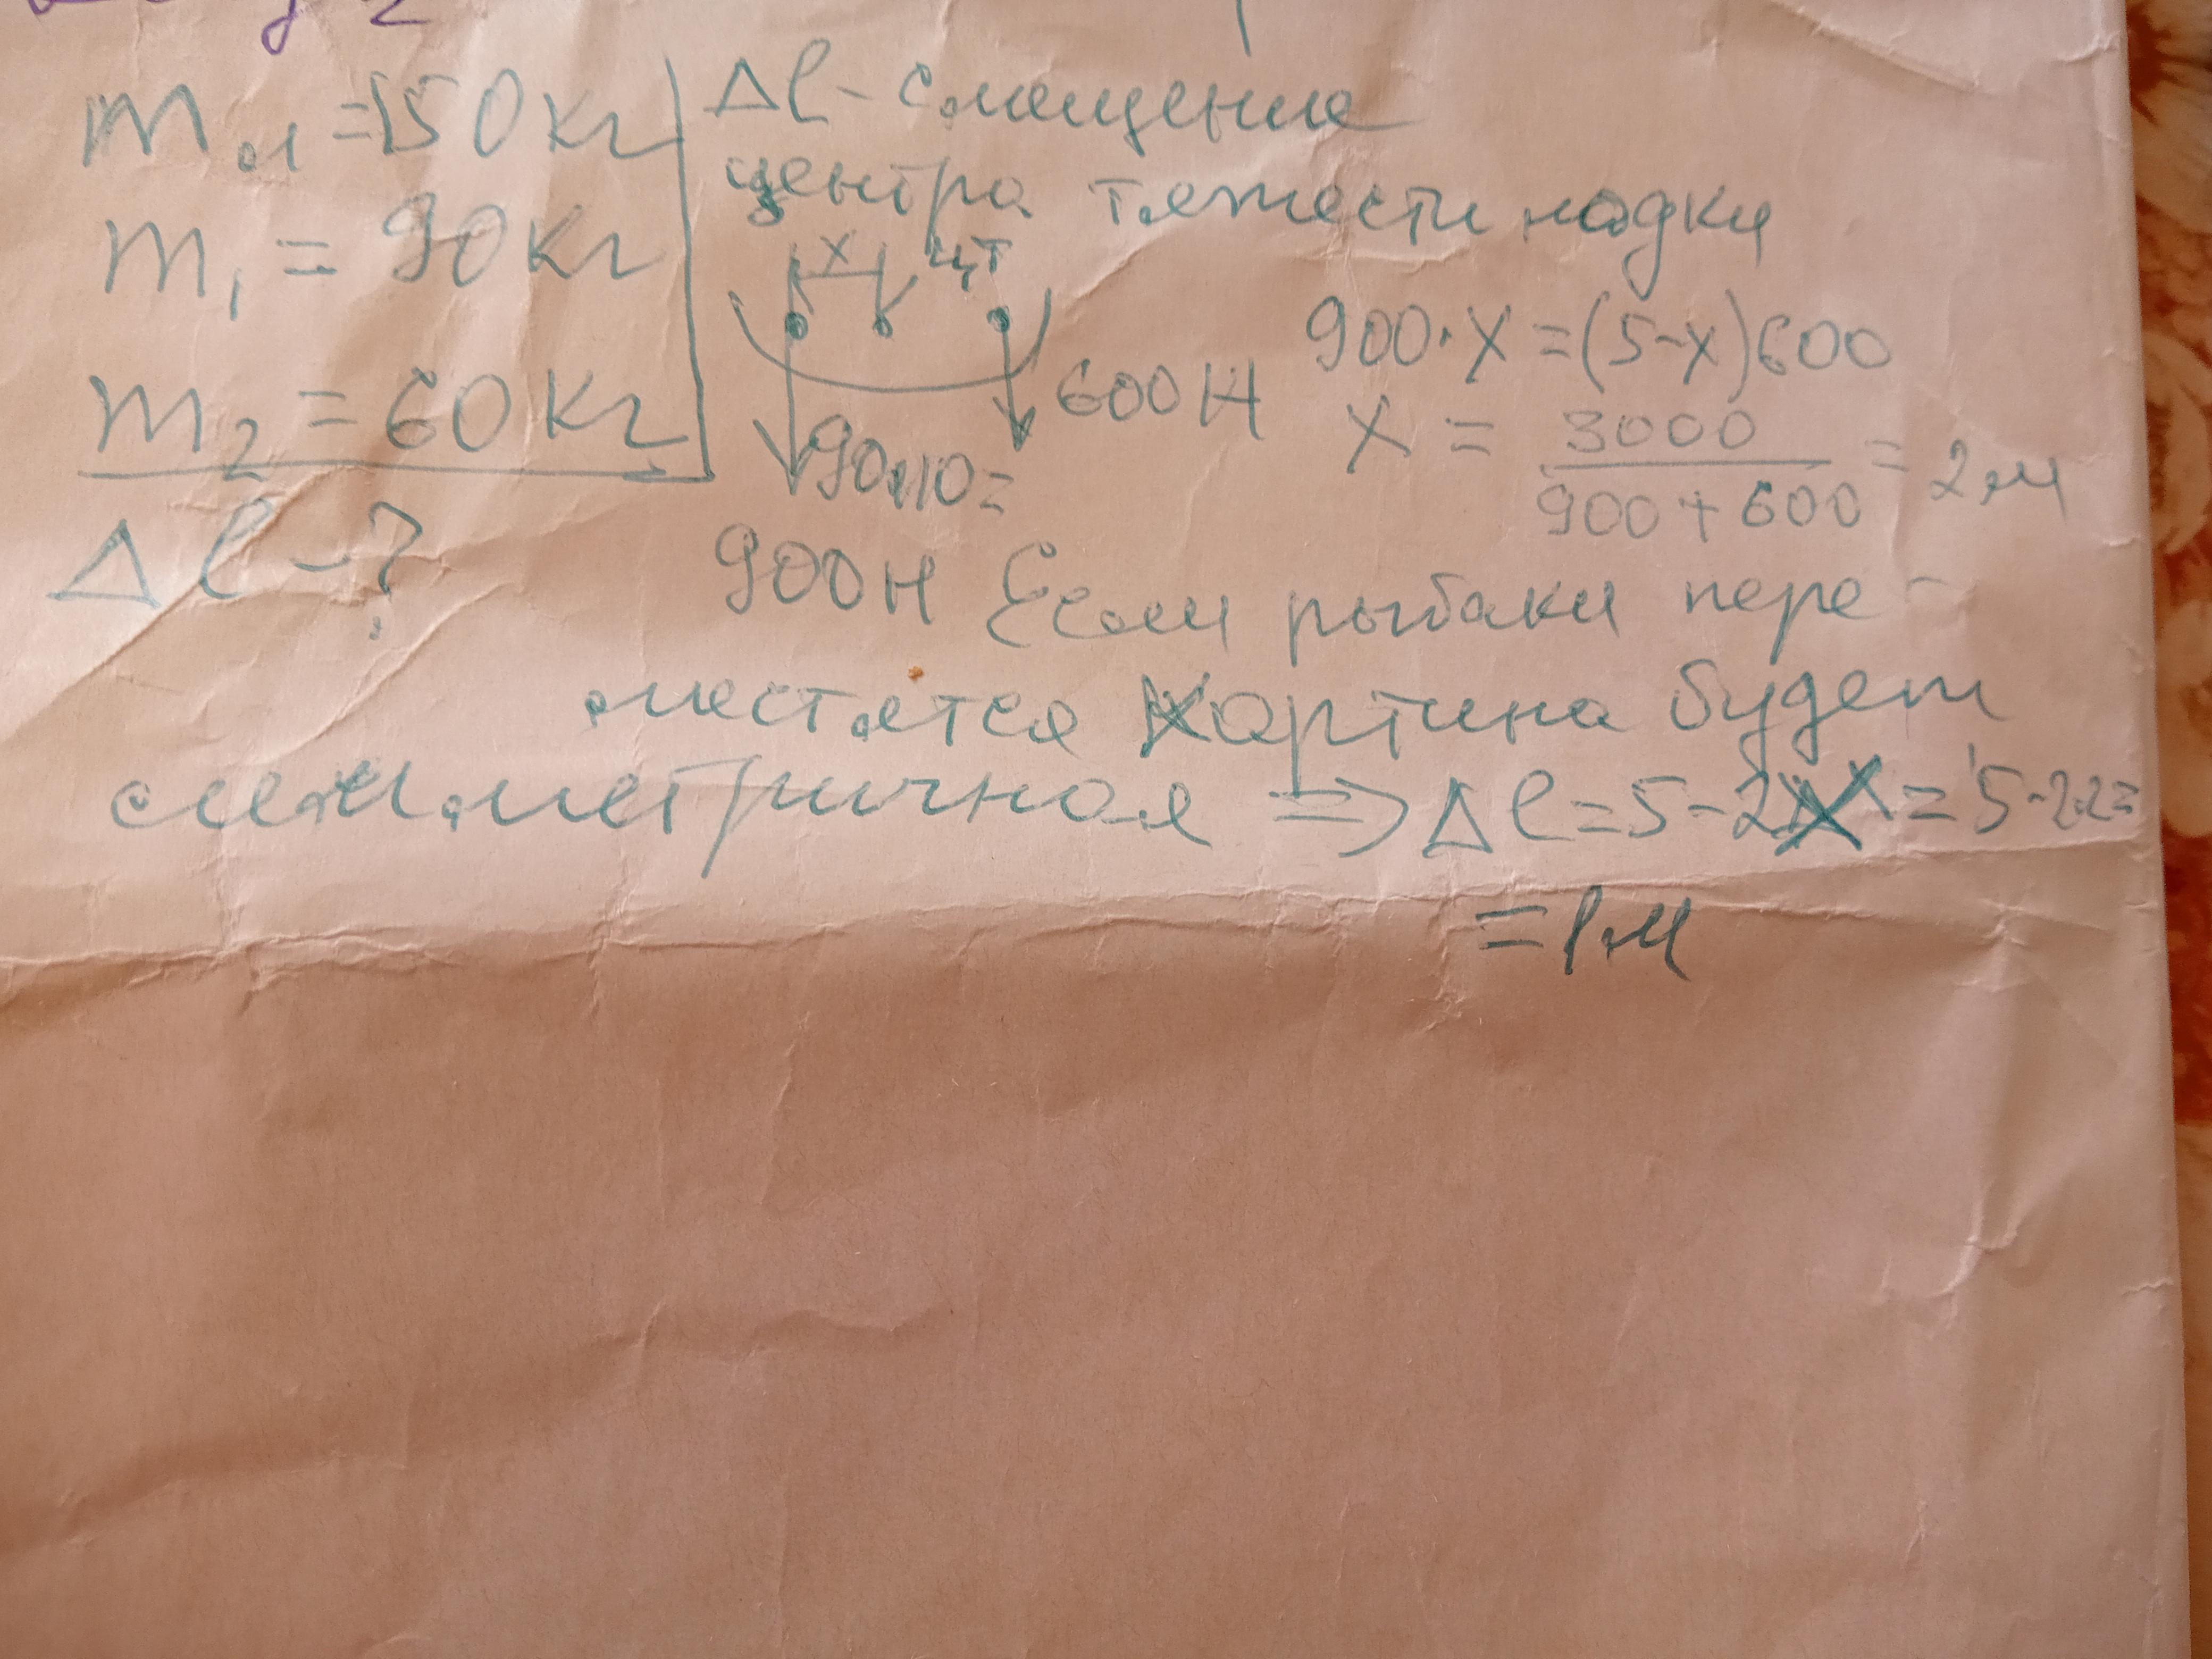 mл = 150 кг
m₁ = 90 кг
m₂ = 60 кг
Δl - ?
Δl - смещение
центра тяжести лодки
x цт
600 Н
90·10=
900 Н
900·x = (5-x)600
x = 3000/(900+600) = 2 м
Если рыбаки пере-
местятся картина будет
симметричная ⇒ Δl = 5-2x = 5-2·2=
= 1 м